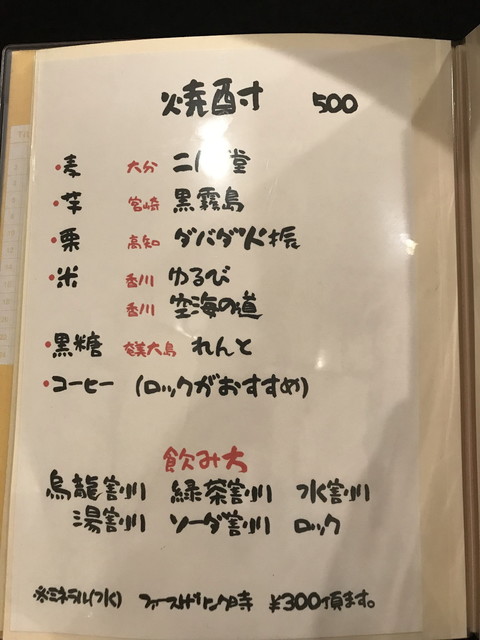 焼酎 500
・麦 大分 二階堂
・芋 宮崎 黒霧島
・栗 高知 ダバダ火振
・米 香川 ゆるび
香川 空海の道
・黒糖 奄美大島 れんと
・コーヒー (ロックがおすすめ)
飲み方
烏龍割り 緑茶割り 水割り
湯割り ソーダ割り ロック
※ミネラル(水) ファーストドリンク時 ¥300頂ます。